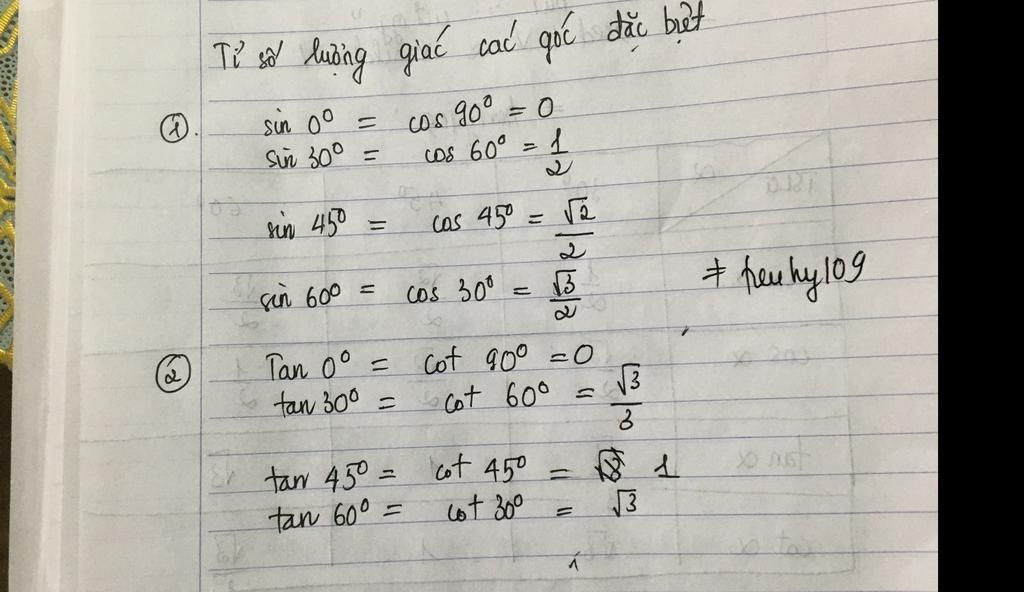 Tỉ số lượng giác các góc đặc biệt
①. sin 0° = cos 90° = 0
sin 30° = cos 60° = 1/2
sin 45° = cos 45° = √2/2
sin 60° = cos 30° = √3/2
② Tan 0° = cot 90° = 0
tan 30° = cot 60° = √3/3
tan 45° = cot 45° = 1
tan 60° = cot 30° = √3